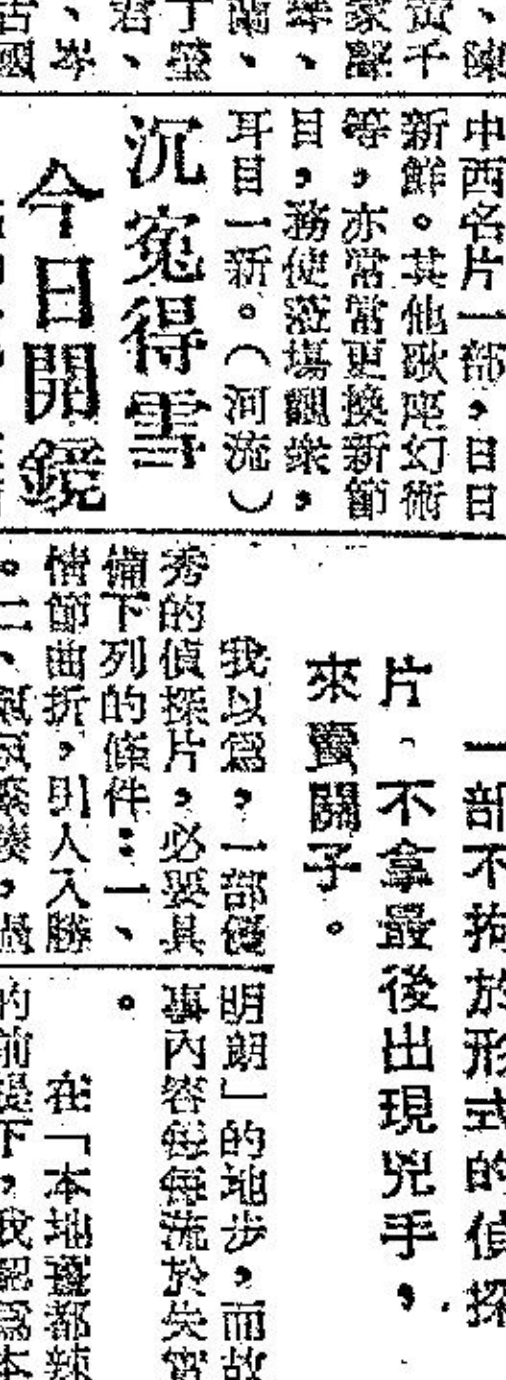 、陳
黃千
家聲
、
蘭、
丁瑩
君、
、岑
古國
中西名片一部，日日
新鮮。其他歌座幻術
等，亦常常更換新節
目，務使蒞場觀衆，
耳目一新。（河流）
沉寃得雪
今日開鏡
一部不拘於形式的偵探
片，不拿最後出現兇手，
來賣關子。
我以爲，一部優
秀的偵探片，必要具
備下列的條件：一、
情節曲折，引人入勝
。二、氣氛緊湊，
明朗」的地步，而故
事內容每每流於失實
。
在「本地薑都辣
的前提下，我認爲本